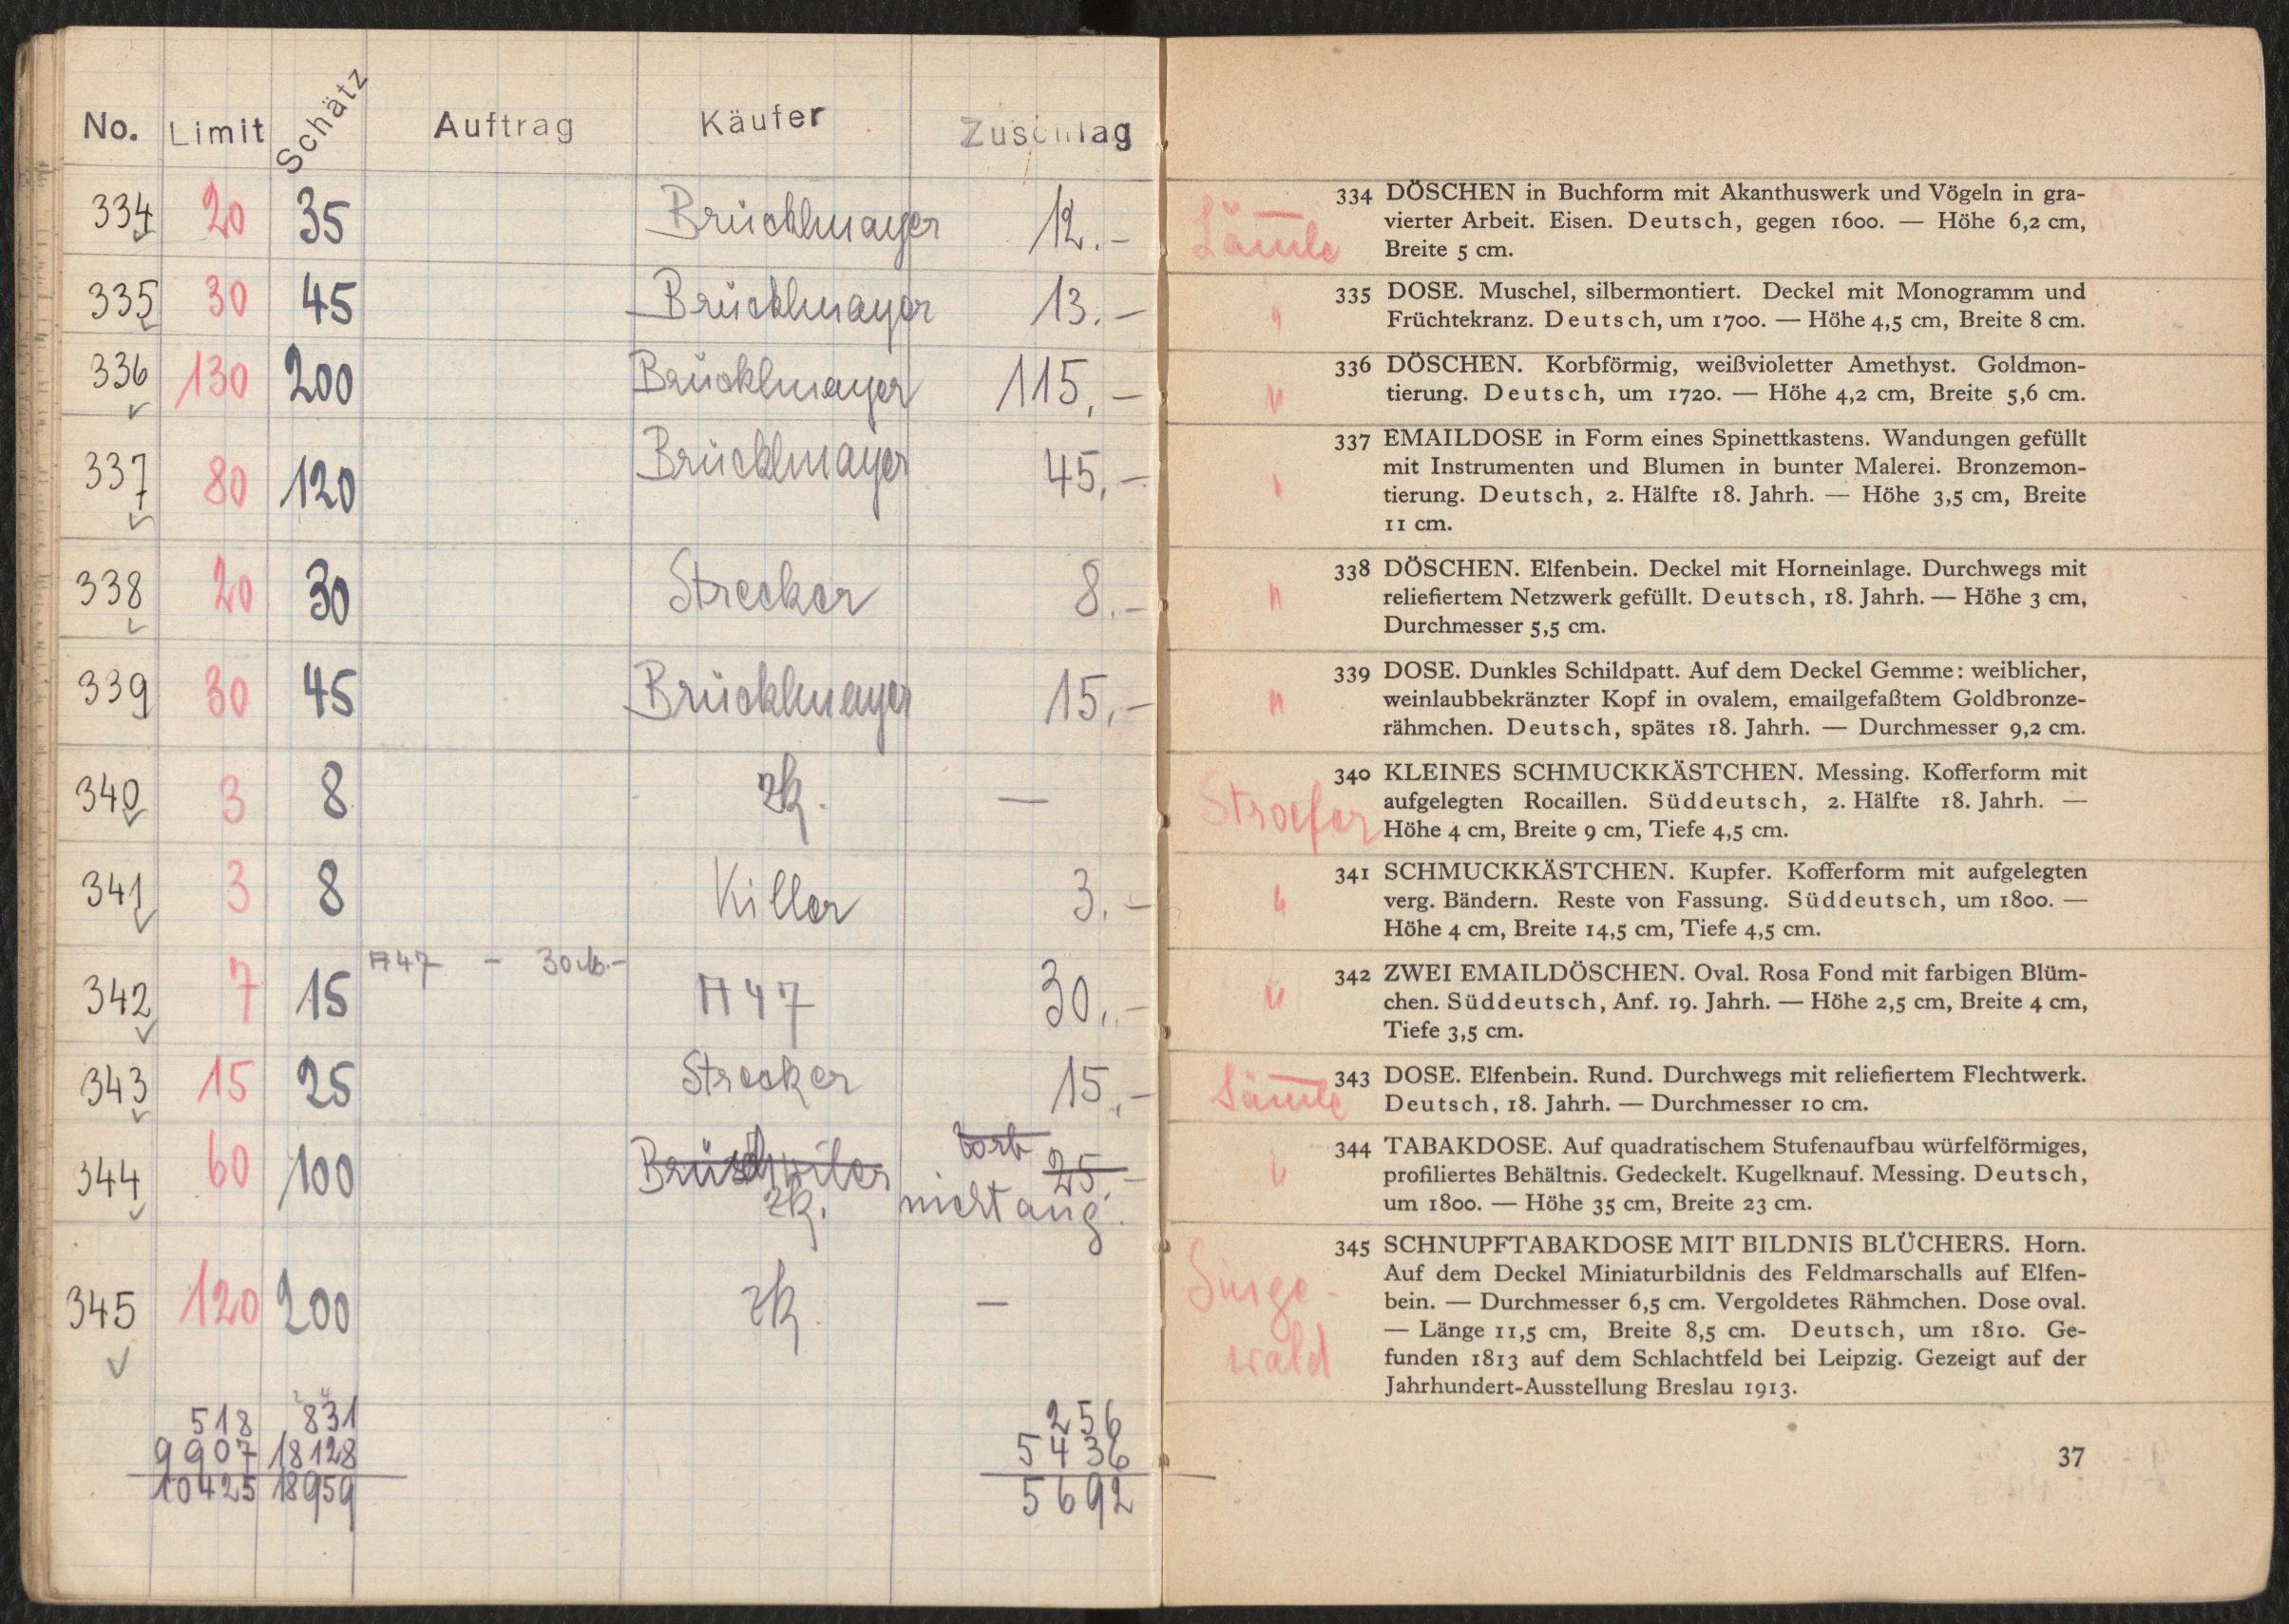 No. Limit Schätz Auftrag Käufer Zuschlag
334 20 35 Brücklmayer 12.-
335 30 45 Brücklmayer 13.-
336 130 200 Brücklmayer 115,-
337 80 120 Brücklmayer 45,-
338 20 30 Strecker 8.-
339 30 45 Brücklmayer 15,-
340 3 8 zk. —
341 3 8 Killer 3.-
342 7 15 A47 - 30 M.- A47 30,-
343 15 25 Strecker 15,-
344 60 100 Brüschwiler 25.-
zk. nicht ang.
345 120 200 zk. —
518 831 256
9907 18128 5436
10425 18959 5692
334 DÖSCHEN in Buchform mit Akanthuswerk und Vögeln in gra-
vierter Arbeit. Eisen. Deutsch, gegen 1600. — Höhe 6,2 cm,
Breite 5 cm.
335 DOSE. Muschel, silbermontiert. Deckel mit Monogramm und
" Früchtekranz. Deutsch, um 1700. — Höhe 4,5 cm, Breite 8 cm.
336 DÖSCHEN. Korbförmig, weißvioletter Amethyst. Goldmon-
" tierung. Deutsch, um 1720. — Höhe 4,2 cm, Breite 5,6 cm.
337 EMAILDOSE in Form eines Spinettkastens. Wandungen gefüllt
mit Instrumenten und Blumen in bunter Malerei. Bronzemon-
" tierung. Deutsch, 2. Hälfte 18. Jahrh. — Höhe 3,5 cm, Breite
11 cm.
338 DÖSCHEN. Elfenbein. Deckel mit Horneinlage. Durchwegs mit
" reliefiertem Netzwerk gefüllt. Deutsch, 18. Jahrh. — Höhe 3 cm,
Durchmesser 5,5 cm.
339 DOSE. Dunkles Schildpatt. Auf dem Deckel Gemme: weiblicher,
" weinlaubbekränzter Kopf in ovalem, emailgefaßtem Goldbronze-
rähmchen. Deutsch, spätes 18. Jahrh. — Durchmesser 9,2 cm.
340 KLEINES SCHMUCKKÄSTCHEN. Messing. Kofferform mit
Stroefer aufgelegten Rocaillen. Süddeutsch, 2. Hälfte 18. Jahrh. —
Höhe 4 cm, Breite 9 cm, Tiefe 4,5 cm.
341 SCHMUCKKÄSTCHEN. Kupfer. Kofferform mit aufgelegten
" verg. Bändern. Reste von Fassung. Süddeutsch, um 1800. —
Höhe 4 cm, Breite 14,5 cm, Tiefe 4,5 cm.
342 ZWEI EMAILDÖSCHEN. Oval. Rosa Fond mit farbigen Blüm-
" chen. Süddeutsch, Anf. 19. Jahrh. — Höhe 2,5 cm, Breite 4 cm,
Tiefe 3,5 cm.
343 DOSE. Elfenbein. Rund. Durchwegs mit reliefiertem Flechtwerk.
Deutsch, 18. Jahrh. — Durchmesser 10 cm.
344 TABAKDOSE. Auf quadratischem Stufenaufbau würfelförmiges,
" profiliertes Behältnis. Gedeckelt. Kugelknauf. Messing. Deutsch,
um 1800. — Höhe 35 cm, Breite 23 cm.
345 SCHNUPFTABAKDOSE MIT BILDNIS BLÜCHERS. Horn.
Auf dem Deckel Miniaturbildnis des Feldmarschalls auf Elfen-
Singe- bein. — Durchmesser 6,5 cm. Vergoldetes Rähmchen. Dose oval.
— Länge 11,5 cm, Breite 8,5 cm. Deutsch, um 1810. Ge-
wald funden 1813 auf dem Schlachtfeld bei Leipzig. Gezeigt auf der
Jahrhundert-Ausstellung Breslau 1913.
37